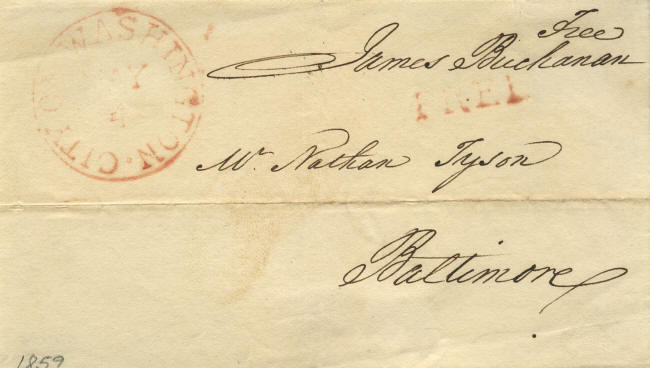 CITY OF WASHINGTON
Free
James Buchanan
FREE
Mr. Nathan Tyson
Baltimore
1859